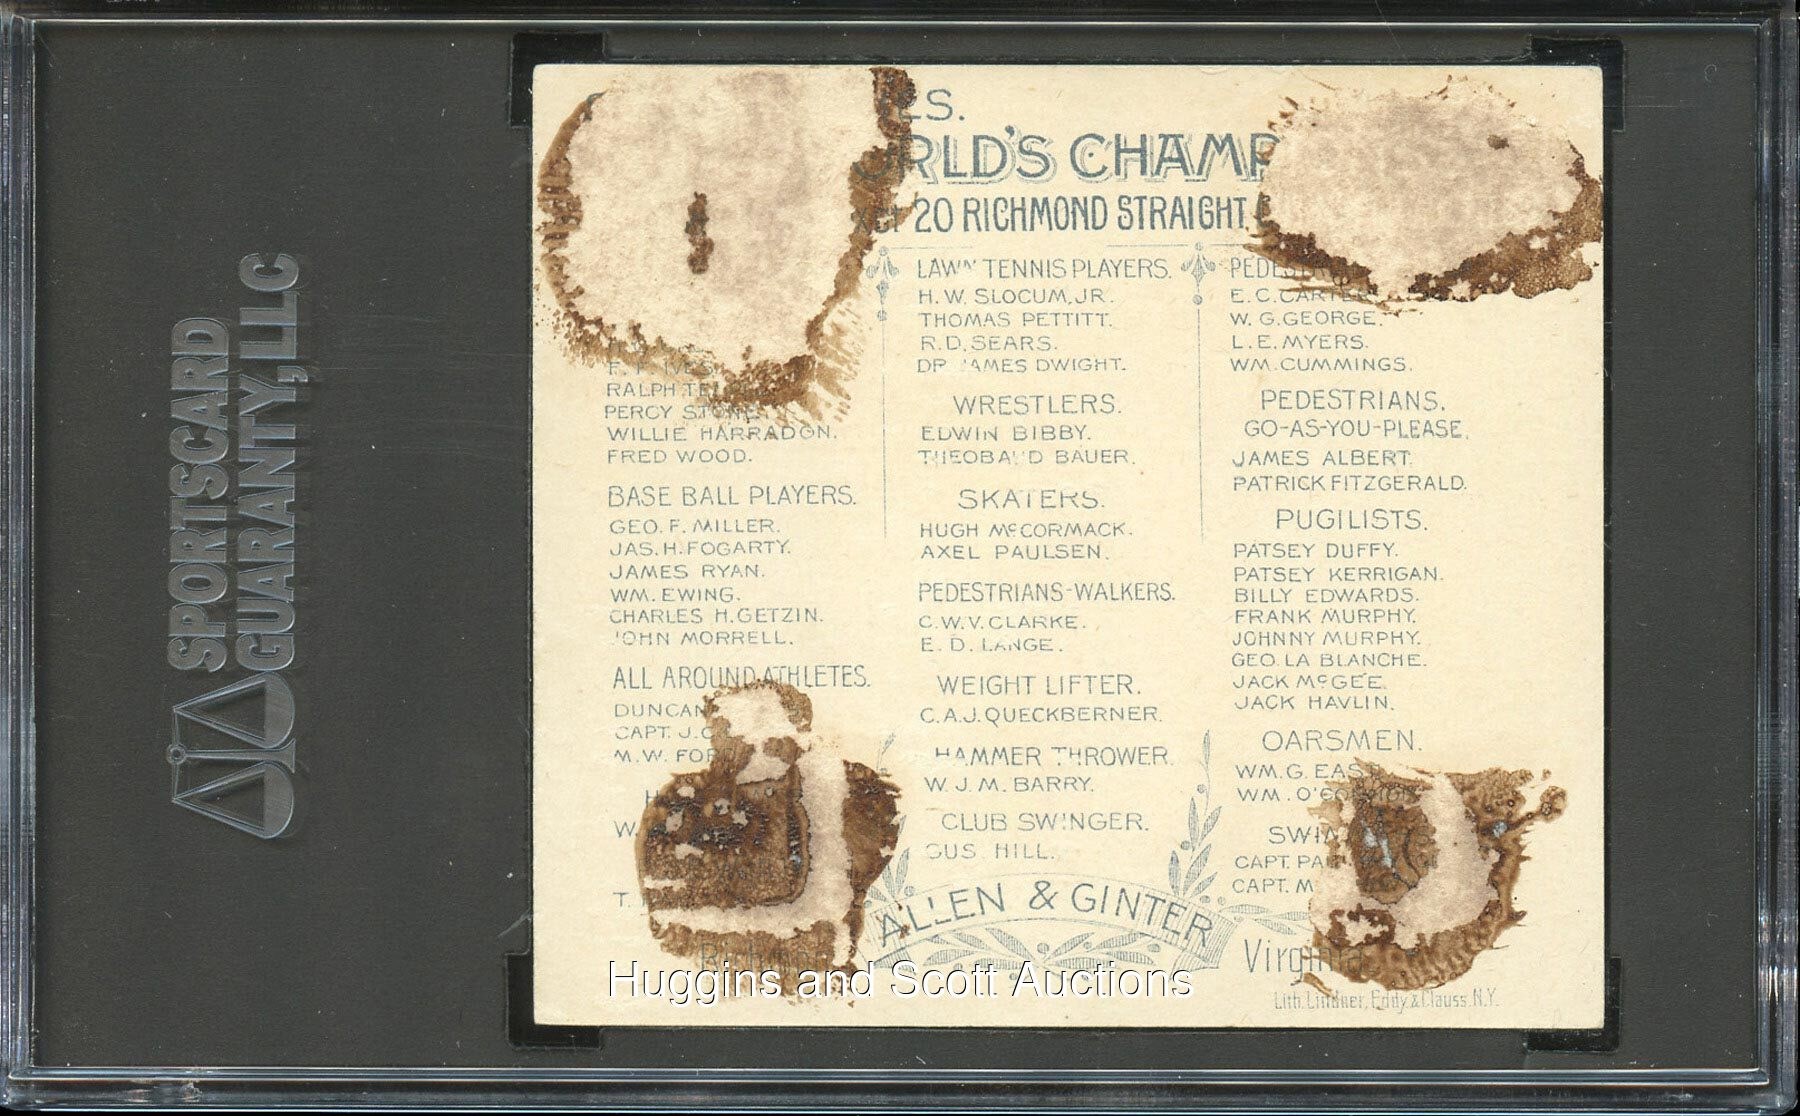 SPORTSCARD
GUARANTY, LLC
WORLD'S CHAMP
20 RICHMOND STRAIGHT
F. F. IVES.
RALPH
PERCY STONE.
WILLIE HARRADON.
FRED WOOD.
BASE BALL PLAYERS.
GEO. F. MILLER.
JAS. H. FOGARTY.
JAMES RYAN.
WM. EWING.
CHARLES H. GETZIN.
JOHN MORRELL.
ALL AROUND ATHLETES.
DUNCAN
CAPT. J. C.
M. W. FOR
W.
T.
LAWN TENNIS PLAYERS.
H. W. SLOCUM, JR.
THOMAS PETTITT.
R. D. SEARS.
DR JAMES DWIGHT.
WRESTLERS.
EDWIN BIBBY.
THEOBALD BAUER.
SKATERS.
HUGH McCORMACK.
AXEL PAULSEN.
PEDESTRIANS-WALKERS.
C. W. V. CLARKE.
E. D. LANGE.
WEIGHT LIFTER.
C. A. J. QUECKBERNER.
HAMMER THROWER.
W. J. M. BARRY.
CLUB SWINGER.
GUS HILL.
E. C. CARTER
W. G. GEORGE.
L. E. MYERS.
WM. CUMMINGS.
PEDESTRIANS.
GO-AS-YOU-PLEASE.
JAMES ALBERT.
PATRICK FITZGERALD.
PUGILISTS.
PATSEY DUFFY.
PATSEY KERRIGAN.
BILLY EDWARDS.
FRANK MURPHY.
JOHNNY MURPHY.
GEO. LA BLANCHE.
JACK McGEE.
JACK HAVLIN.
OARSMEN.
WM. G. EAS
WM. O'CONNOR
SWIM
CAPT. PA
CAPT. M
ALLEN & GINTER
Richmond Virginia
Lith. Lindner, Eddy & Clauss. N.Y.
Huggins and Scott Auctions